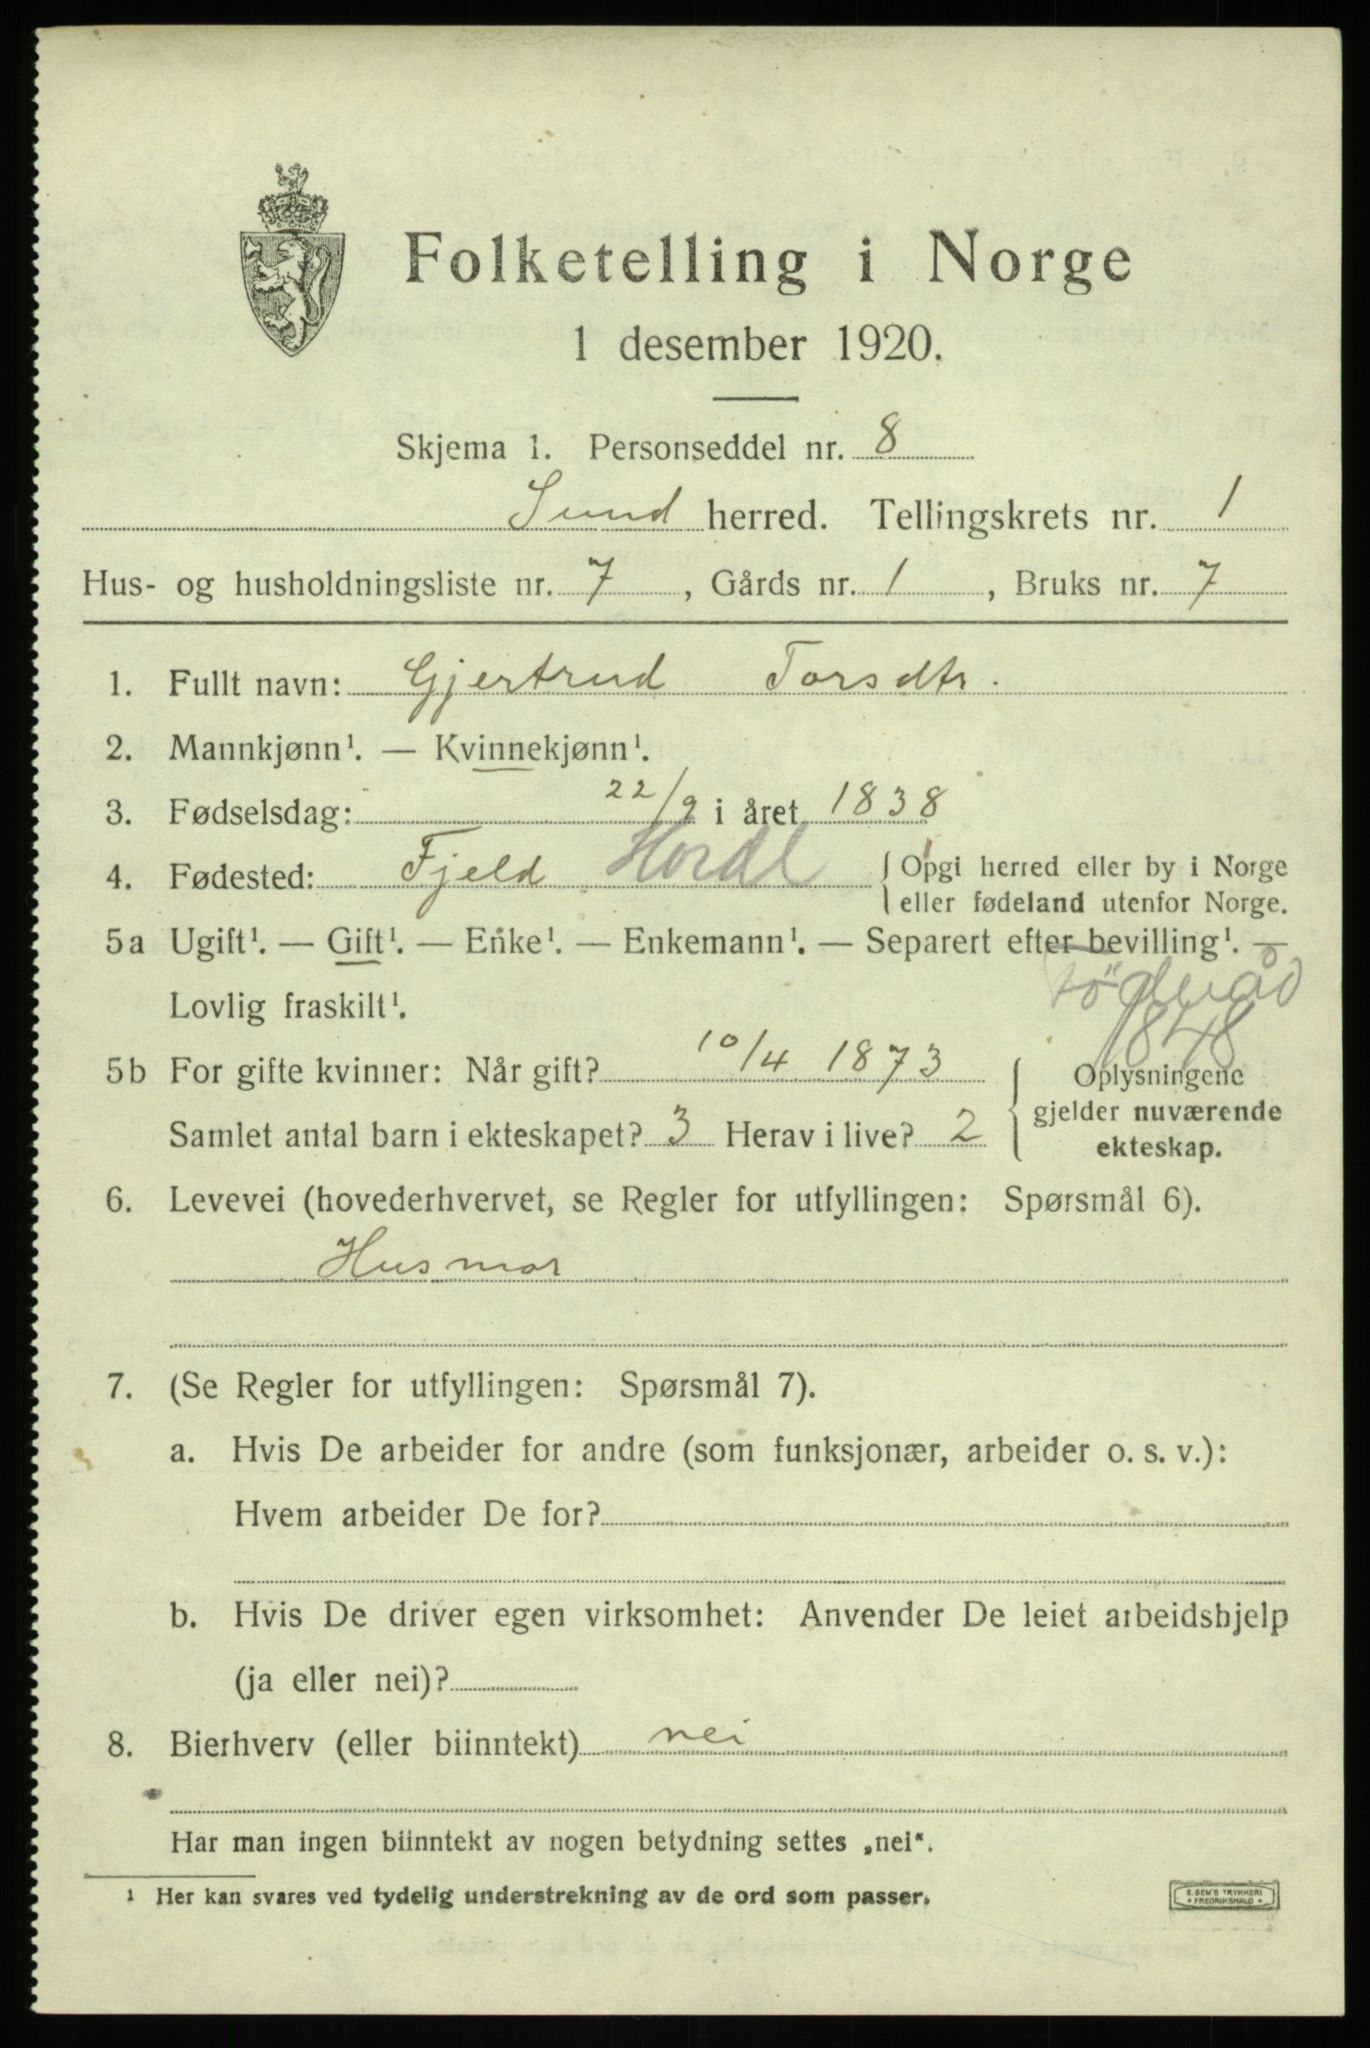 Folketelling i Norge
1 desember 1920.
Skjema 1. Personseddel nr. 8
Sund herred. Tellingskrets nr. 1
Hus- og husholdningsliste nr. 7, Gårds nr. 1, Bruks nr. 7
1. Fullt navn: Gjertrud Torsdtr.
2. Mannkjønn¹. — Kvinnekjønn¹.
3. Fødselsdag: 22/9 i året 1838
4. Fødested: Fjeld Hordl { Opgi herred eller by i Norge
eller fødeland utenfor Norge.
5a Ugift¹. — Gift¹. — Enke¹. — Enkemann¹. — Separert efter bevilling¹. —
Lovlig fraskilt¹.
1848
5b For gifte kvinner: Når gift? 10/4 1873 { Oplysningene
gjelder nuværende
Samlet antal barn i ekteskapet? 3 Herav i live? 2
ekteskap.
6. Levevei (hovederhvervet, se Regler for utfyllingen: Spørsmål 6).
Husmor
7. (Se Regler for utfyllingen: Spørsmål 7).
a. Hvis De arbeider for andre (som funksjonær, arbeider o. s. v.):
Hvem arbeider De for?
b. Hvis De driver egen virksomhet: Anvender De leiet arbeidshjelp
(ja eller nei)?
8. Bierhverv (eller biinntekt) nei
Har man ingen biinntekt av nogen betydning settes „nei“.
¹ Her kan svares ved tydelig understrekning av de ord som passer.
E. SEM'S TRYKKERI
FREDRIKSHALD